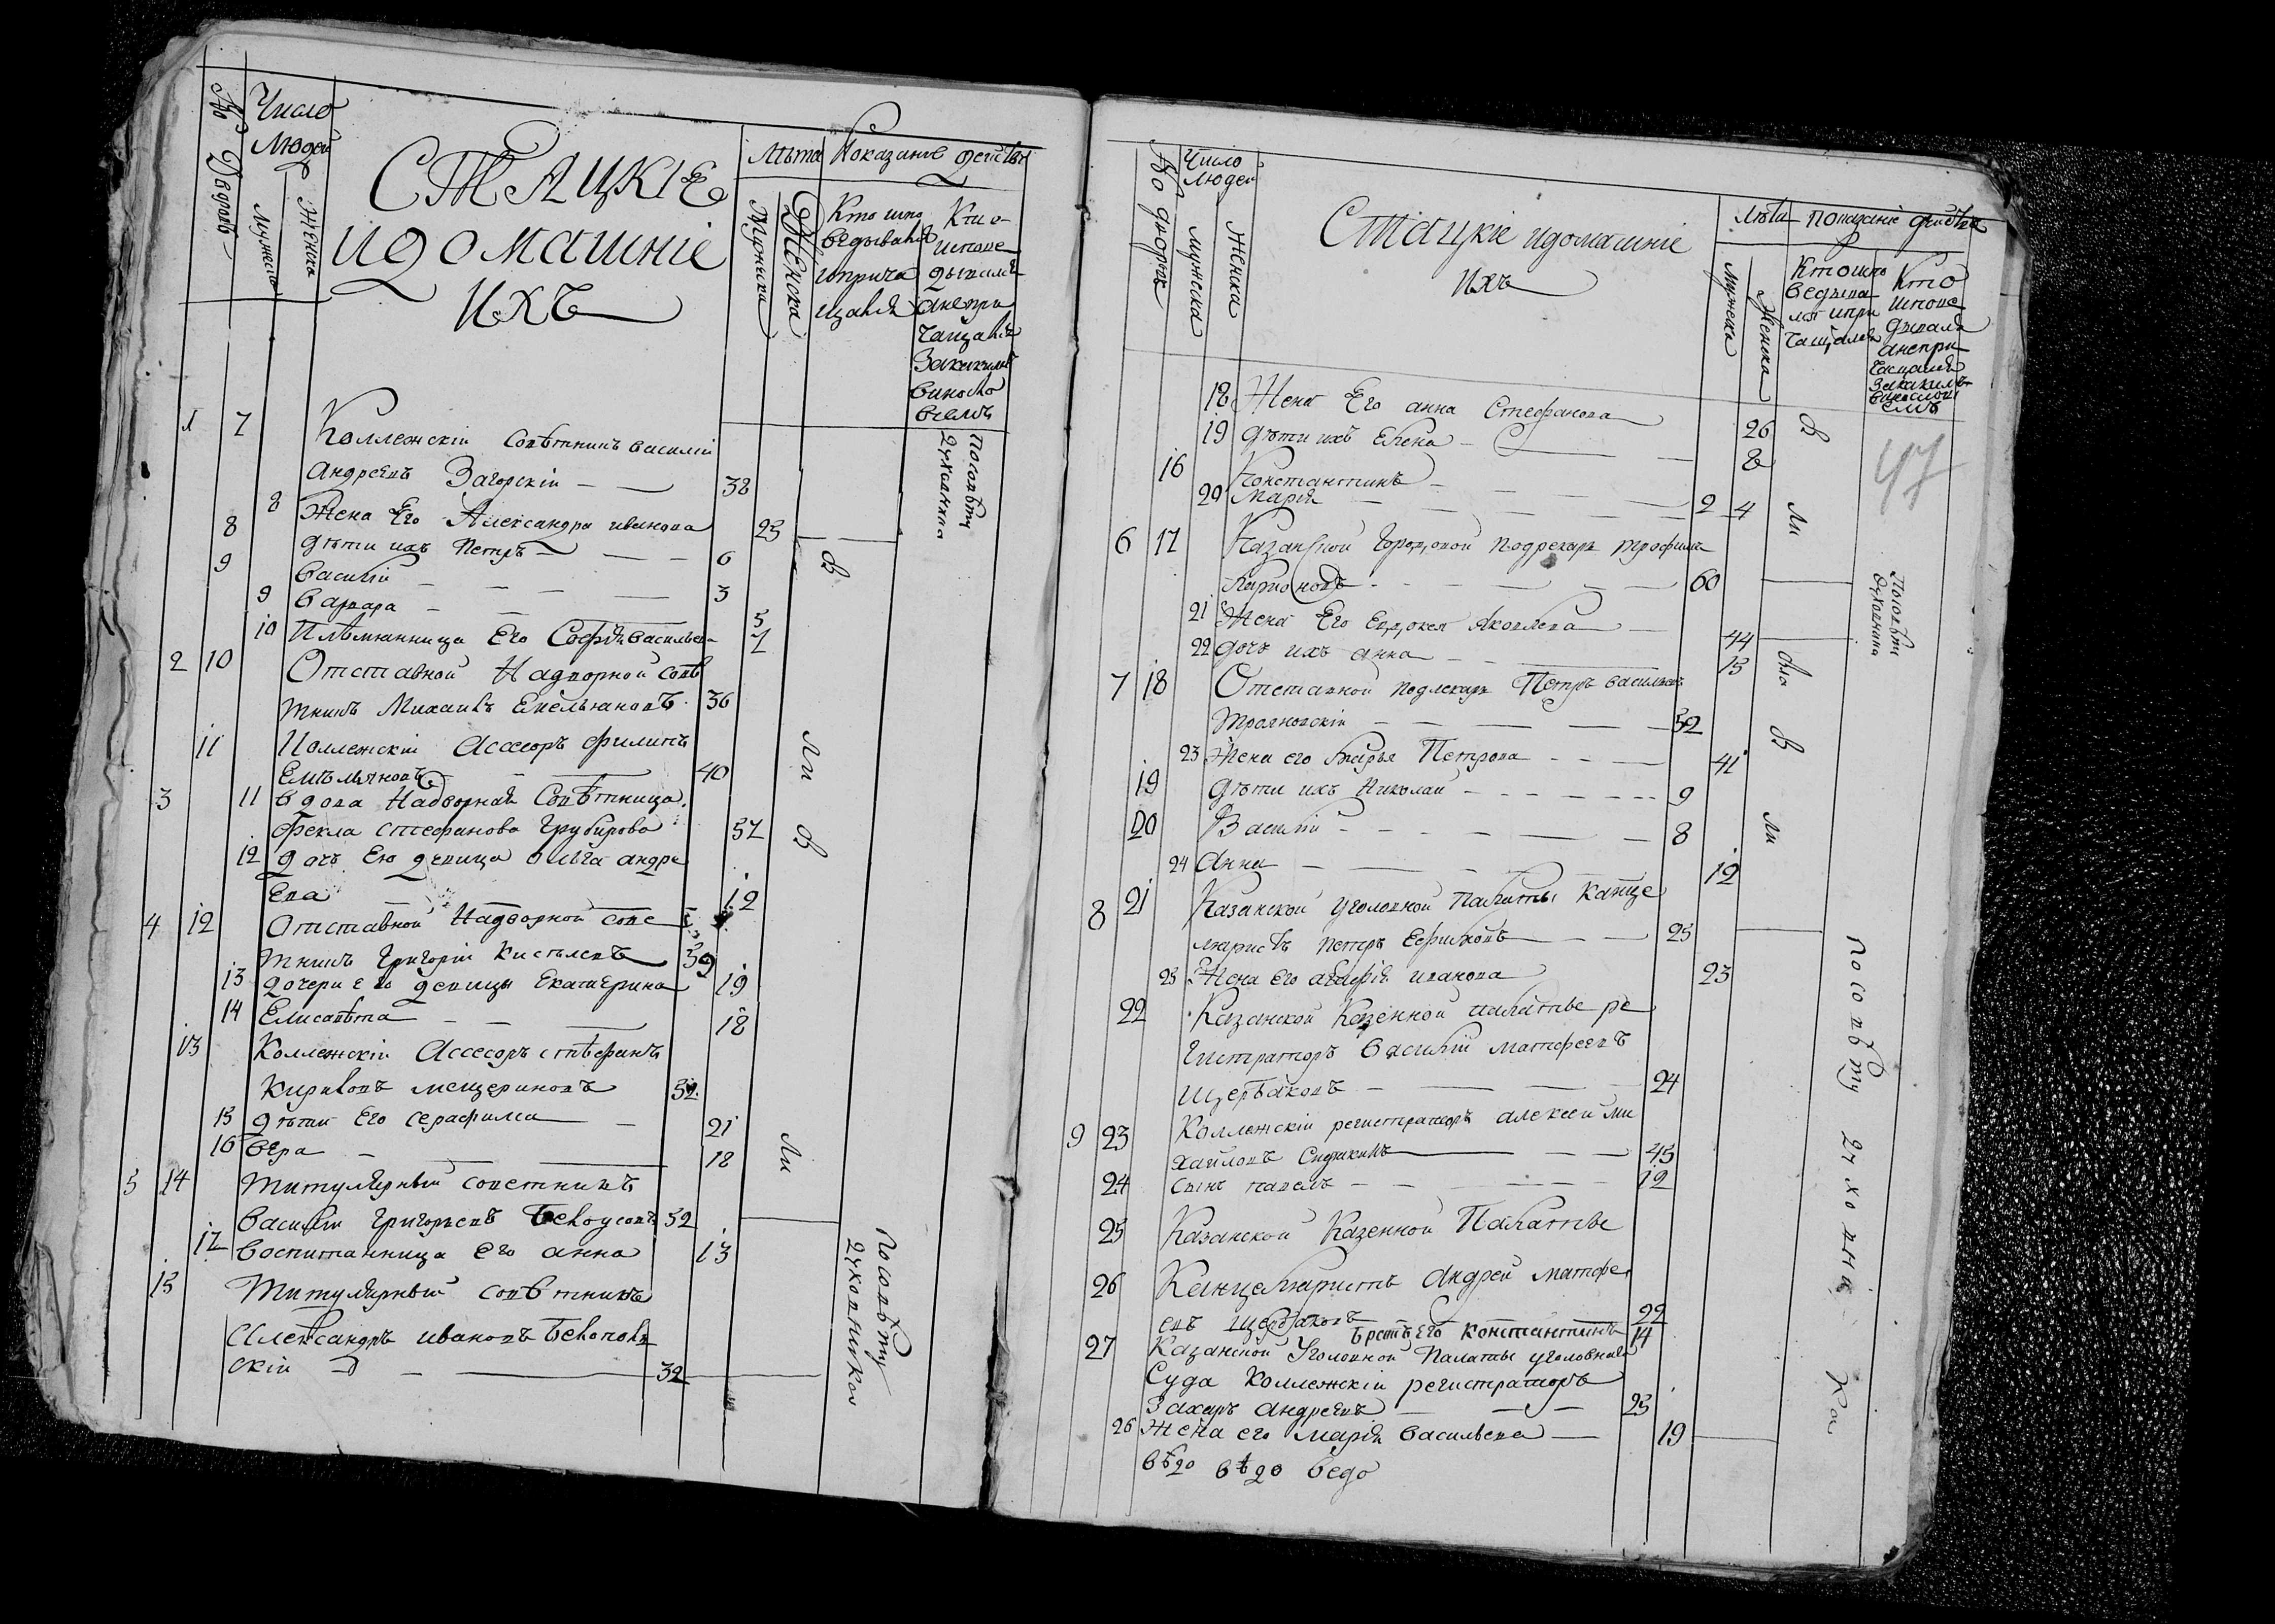 Число
Людей
№ Дворовъ
Мужеска
Женска
СТАЦКІЕ
И ДОМАШНІЕ
ИХЪ
Лѣта
Показаніе действа
Мужска
Женска
Кто испо
ведывался
и прича
щался
Кто
испове
дывался
а не при
чащался
За какимъ
виносло
виемъ
1 7 Коллежскіи Совѣтникъ Василіи
Андреевъ Загорскіи 38
8 Жена Его Александра иванова 25
8 дѣти ихъ Петръ 6
9 василіи 3
9 варвара 5
10 Племянница Его Софія васильева 7
2 10 Отставной Надворной совѣ
тникъ Михаилъ Емельяновъ 36
11 Коллежскіи Ассесоръ филипъ
Емельяновъ 40
3 11 вдова Надворная Совѣтница
Фекла стефанова Грубирова 57
12 дочь Ею девица ольга андре
ева 12
4 12 Отставной Надворной сове
тникъ Григоріи Киселевъ 59
13 дочери его девицы Екатерина 19
14 Елисавѣта 18
13 Коллежскіи Ассесоръ стефанъ
Кириловъ мещериновъ 52
15 дѣти Его серафима 21
16 вера 18
5 14 Титулярныи советникъ
Василіи Григорьевъ Белоусовъ 52
17 воспитанница его анна 13
15 Титулярныи совѣтникъ
Александръ ивановъ Беkополь
скіи 32
По совѣту
духовника
В
Ли
В
Ли
По совѣту
духовника
№ дворъ
Число
Людей
мужеска
Женска
Стацкіе и домашніе
ихъ
Лѣта
Показаніе действа
Мужеска
Женска
Кто испо
ведыва
лся и при
чащался
Кто
испове
дывался
а не при
чащался
За какимъ
винослові
емъ
47
18 Жена Его анна Стефанова 26
19 дѣти ихъ Елена 8
16 Константинъ 2
20 Марія 4
6 17 Казанской Городовой подлекарь трофимъ
Ларионовъ 60
21 Жена Его Евдокея Яковлева 44
22 дочь ихъ анна 15
7 18 Отставной подлекарь Петръ васильевъ
трояновскіи 52
23 Жена его Дарья Петрова 41
19 дѣти ихъ Николаи 9
20 Василіи 8
24 Анна 12
8 21 Казанской уголовной Палаты канце
ляристъ петръ Ефимовъ 25
25 Жена Его агафія иванова 23
22 Казанской Казенной палаты ре
гистраторъ Василіи матфеевъ
Щербаковъ 24
9 23 Коллежскіи регистраторъ алексеи ми
хаиловъ 45
24 сынъ павелъ 12
25 Казанской Казенной Палаты
26 Канцеляристъ Андреи матфе
евъ Щербаковъ 22
братъ Его константинъ 14
27 Казанской Уголовной Палаты уголовнаго
Суда Коллежскіи регистраторъ
Захаръ Андреевъ 25
26 Жена его Марія васильева 19
вѣдо вѣдо ведо
В
Ли
По совѣту
духовника
В
Ли
По совѣту духовника